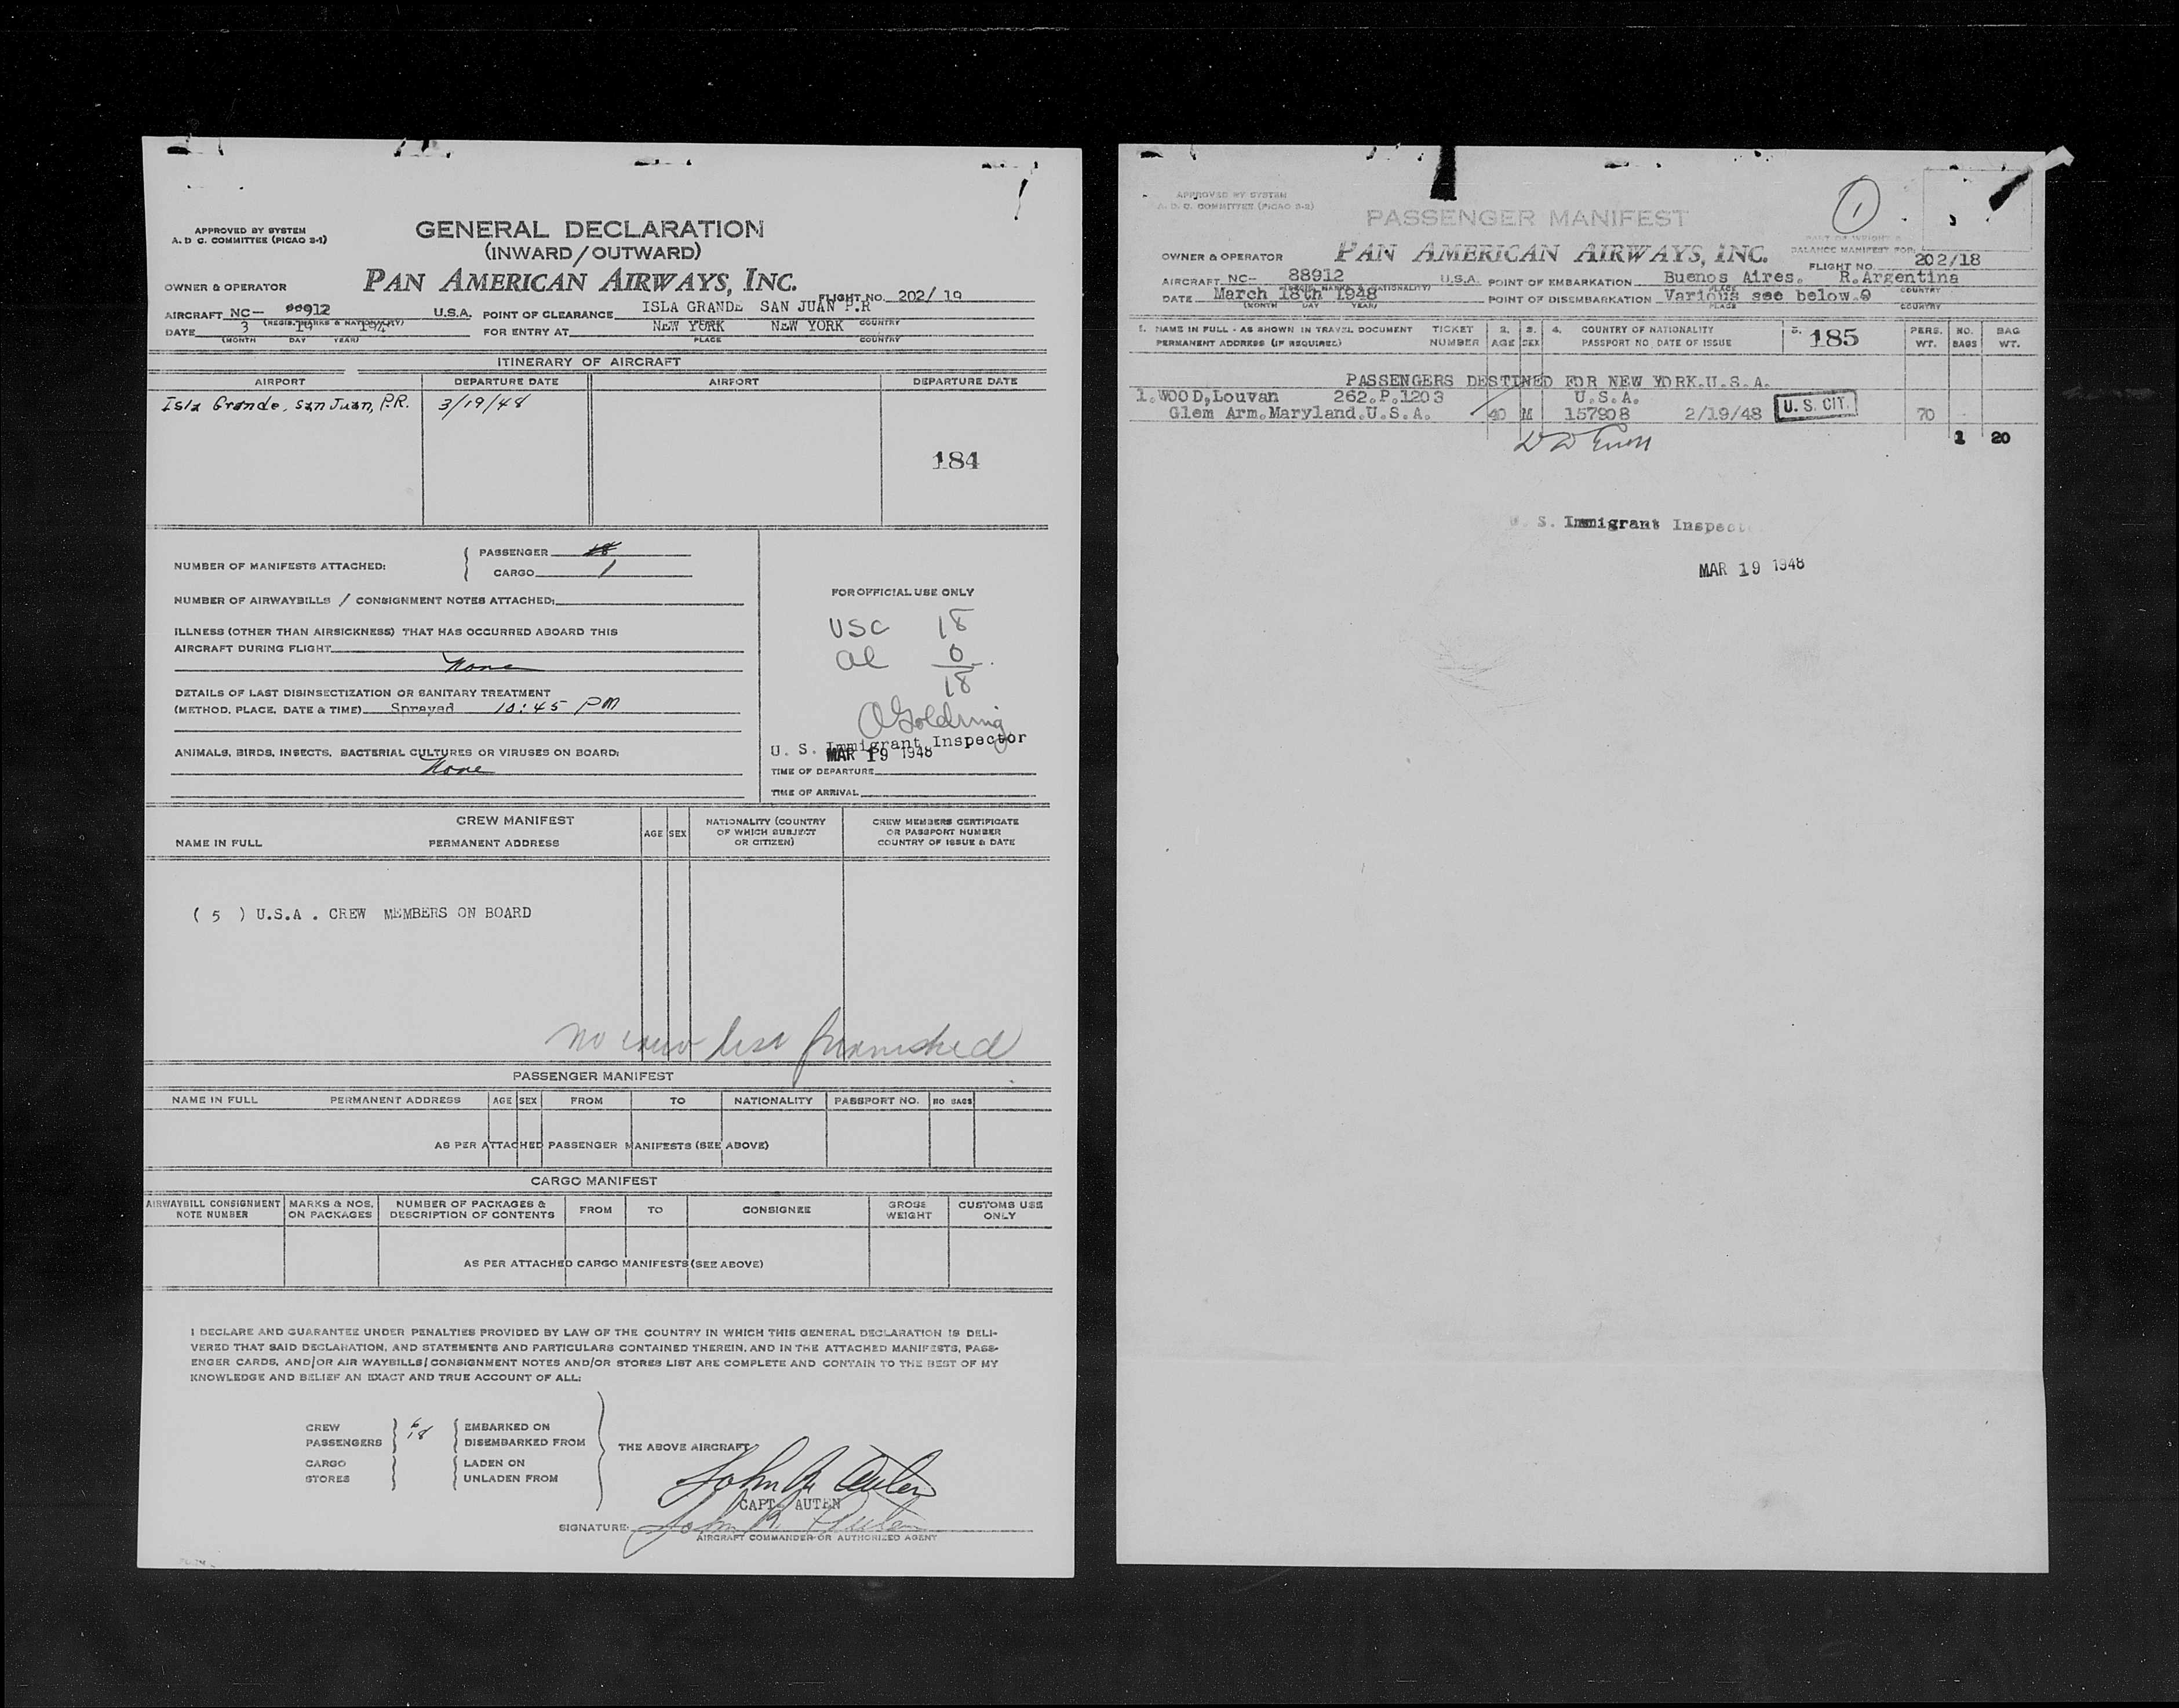 APPROVED BY SYSTEM
A. D C. COMMITTEE (PICAO S-1)
GENERAL DECLARATION
(INWARD/OUTWARD)
OWNER & OPERATOR
PAN AMERICAN AIRWAYS, INC.
FLIGHT NO. 202/ 19
AIRCRAFT NC-
(REGIS. MARKS & NATIONALITY)
U.S.A. POINT OF CLEARANCE ISLA GRANDE SAN JUAN P.R
DATE 3 19
(MONTH DAY YEAR)
FOR ENTRY AT NEW YORK NEW YORK
PLACE COUNTRY
ITINERARY OF AIRCRAFT
AIRPORT DEPARTURE DATE AIRPORT DEPARTURE DATE
Isla Grande, San Juan, P.R. 3/19/48
184
NUMBER OF MANIFESTS ATTACHED:
PASSENGER
CARGO 1
NUMBER OF AIRWAYBILLS / CONSIGNMENT NOTES ATTACHED:
ILLNESS (OTHER THAN AIRSICKNESS) THAT HAS OCCURRED ABOARD THIS
AIRCRAFT DURING FLIGHT
None
DETAILS OF LAST DISINSECTIZATION OR SANITARY TREATMENT
(METHOD, PLACE, DATE & TIME) Sprayed 10:45 PM
ANIMALS, BIRDS, INSECTS, BACTERIAL CULTURES OR VIRUSES ON BOARD:
None
FOR OFFICIAL USE ONLY
USC 18
al 0
18
U. S. Immigrant Inspector
MAR 19 1948
TIME OF DEPARTURE
TIME OF ARRIVAL
CREW MANIFEST
NAME IN FULL PERMANENT ADDRESS AGE SEX
NATIONALITY (COUNTRY
OF WHICH SUBJECT
OR CITIZEN)
CREW MEMBERS CERTIFICATE
OR PASSPORT NUMBER
COUNTRY OF ISSUE & DATE
( 5 ) U.S.A . CREW MEMBERS ON BOARD
No crew list furnished
PASSENGER MANIFEST
NAME IN FULL PERMANENT ADDRESS AGE SEX FROM TO NATIONALITY PASSPORT NO. NO BAGS
AS PER ATTACHED PASSENGER MANIFESTS (SEE ABOVE)
CARGO MANIFEST
AIRWAYBILL CONSIGNMENT
NOTE NUMBER
MARKS & NOS.
ON PACKAGES
NUMBER OF PACKAGES &
DESCRIPTION OF CONTENTS
FROM TO CONSIGNEE
GROSS
WEIGHT
CUSTOMS USE
ONLY
AS PER ATTACHED CARGO MANIFESTS (SEE ABOVE)
I DECLARE AND GUARANTEE UNDER PENALTIES PROVIDED BY LAW OF THE COUNTRY IN WHICH THIS GENERAL DECLARATION IS DELI-
VERED THAT SAID DECLARATION, AND STATEMENTS AND PARTICULARS CONTAINED THEREIN, AND IN THE ATTACHED MANIFESTS, PASS-
ENGER CARDS, AND/OR AIR WAYBILLS/CONSIGNMENT NOTES AND/OR STORES LIST ARE COMPLETE AND CONTAIN TO THE BEST OF MY
KNOWLEDGE AND BELIEF AN EXACT AND TRUE ACCOUNT OF ALL:
CREW EMBARKED ON
PASSENGERS 18 DISEMBARKED FROM
THE ABOVE AIRCRAFT
CARGO LADEN ON
STORES UNLADEN FROM
John R. Auten
CAPT. AUTEN
SIGNATURE: John R. Auten
AIRCRAFT COMMANDER OR AUTHORIZED AGENT
APPROVED BY SYSTEM
A. D. C. COMMITTEE (PICAO S-2)
PASSENGER MANIFEST
1
OWNER & OPERATOR
PAN AMERICAN AIRWAYS, INC.
BALANCE MANIFEST FOR:
FLIGHT NO. 202/18
AIRCRAFT NC- 88912 U.S.A.
(REGIS. MARKS & NATIONALITY)
POINT OF EMBARKATION Buenos Aires. R.Argentina
PLACE COUNTRY
DATE March 18th 1948
(MONTH DAY YEAR)
POINT OF DISEMBARKATION Various see below.
PLACE COUNTRY
1. NAME IN FULL - AS SHOWN IN TRAVEL DOCUMENT
PERMANENT ADDRESS (IF REQUIRED)
TICKET
NUMBER
2.
AGE
3.
SEX
4. COUNTRY OF NATIONALITY
PASSPORT NO. DATE OF ISSUE
5. 185
PERS.
WT.
NO.
BAGS
BAG
WT.
PASSENGERS DESTINED FOR NEW YORK.U.S.A.
1.WOOD,Louvan 262.P.1203 U.S.A.
Glem Arm.Maryland.U.S.A. 40 M 157908 2/19/48 U. S. CIT. 70
1 20
S. Immigrant Inspect
MAR 19 1948